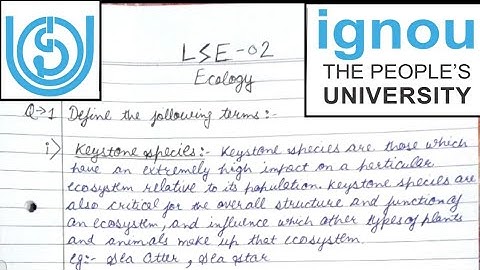 LSE-02
ignou
THE PEOPLE'S
UNIVERSITY
Ecology
Q→1 Define the following terms:-
i) Keystone species:- Keystone species are those which
have an extremely high impact on a particular
ecosystem relative to its population. Keystone species are
also critical for the overall structure and function of
an ecosystem, and influence which other types of plants
and animals make up that ecosystem.
eg:- Sea Otter, Sea star